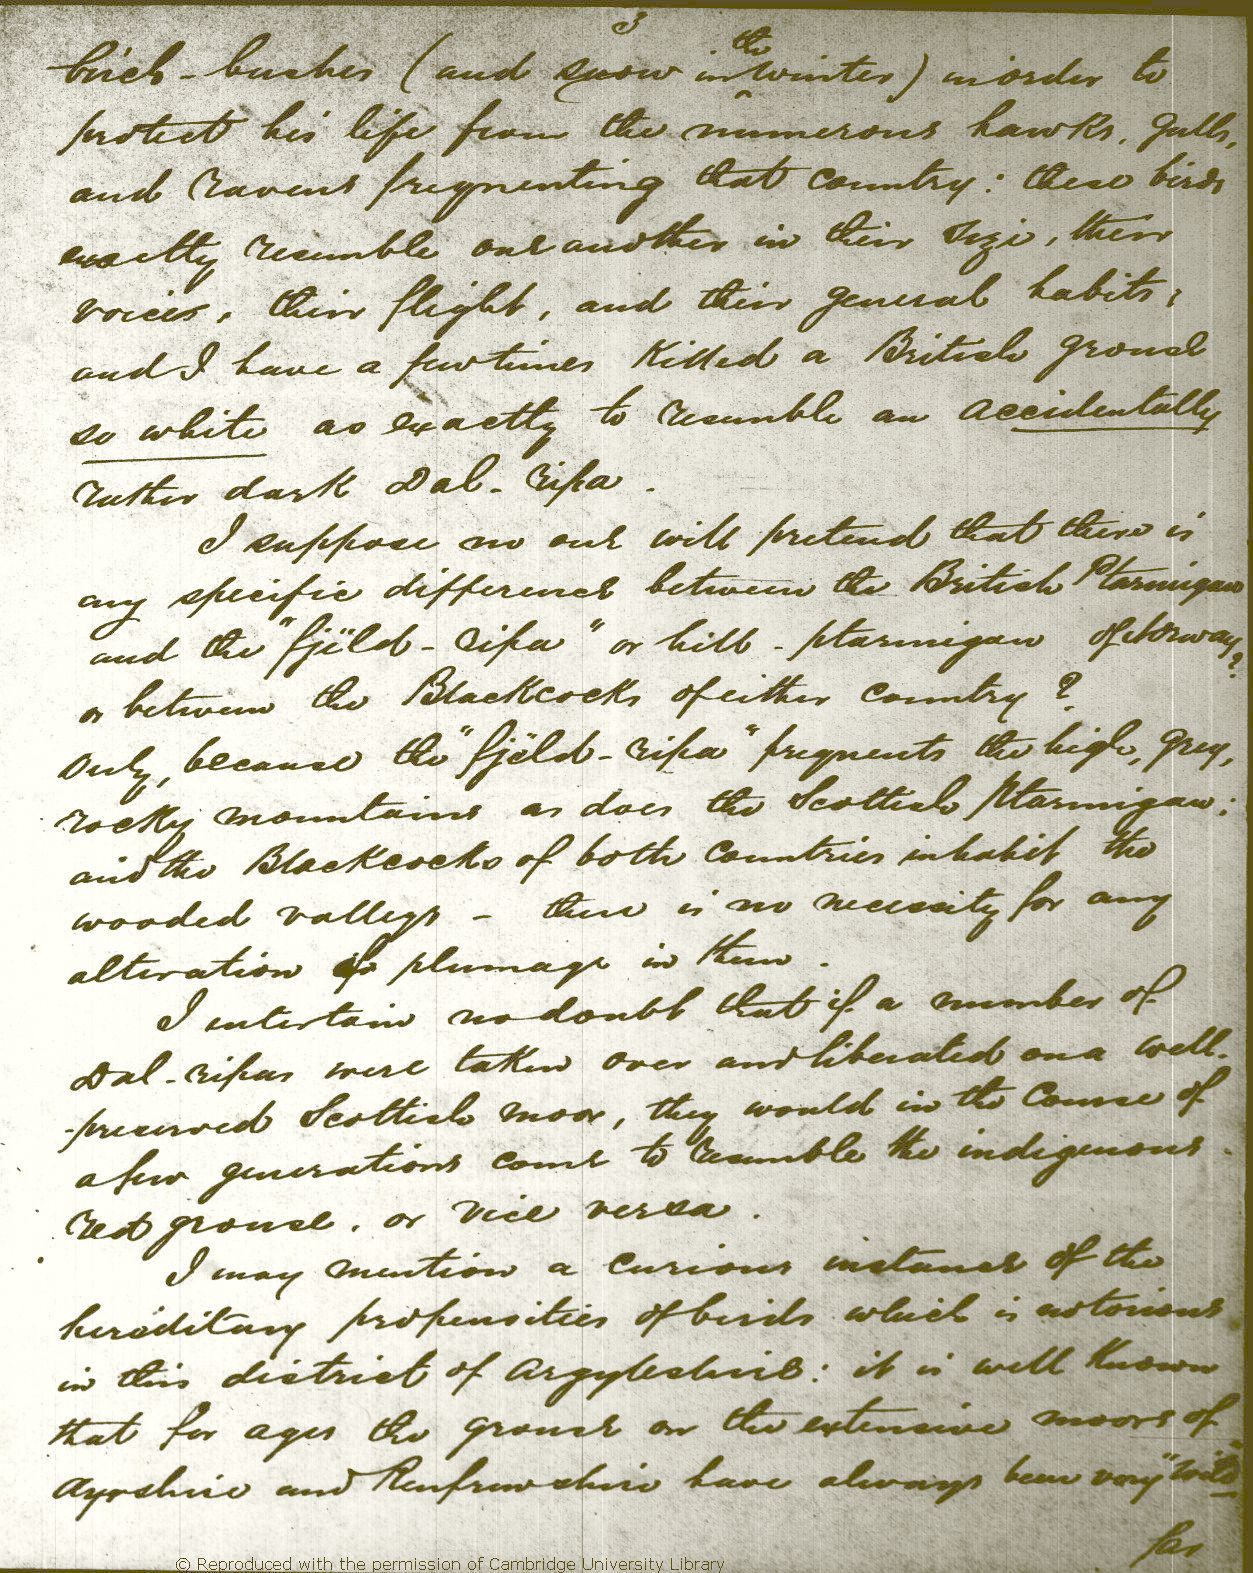 3
birch-bushes (and snow in the winter) in order to
protect his life from the numerous hawks, gulls,
and ravens frequenting that country: these birds
exactly resemble one another in their size, their
voices, their flight, and their general habits;
and I have a few times killed a British grouse
so white as exactly to resemble an accidentally
rather dark Dal-ripa.
I suppose no one will pretend that there is
any specific difference between the British Ptarmigan
and the "fjëld-ripa" or hill-ptarmigan of Norway?
or between the Blackcocks of either country?
Only, because the "fjëld-ripa" frequents the high, grey,
rocky mountains as does the Scottish Ptarmigan:
and the Blackcocks of both countries inhabit the
wooded valleys - there is no necessity for any
alteration of plumage in them.
I entertain no doubt that if a number of
Dal-ripas were taken over and liberated on a well-
-preserved Scottish moor, they would in the course of
a few generations come to resemble the indigenous
red grouse. or vice versa.
I may mention a curious instance of the
hereditary propensities of birds which is notorious
in this district of Argyleshire: it is well known
that for ages the grouse on the extensive moors of
Ayrshire and Renfrewshire have always been very "wild"
far
© Reproduced with the permission of Cambridge University Library